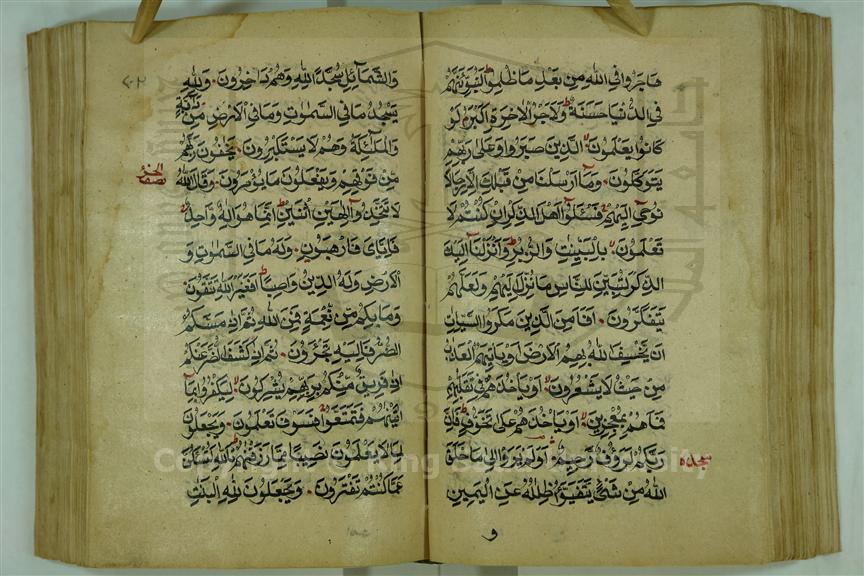 هاجروا في الله من بعد ما ظلموا لنبوئنهم
في الدنيا حسنة ولاجر الاخرة اكبر لو
كانوا يعلمون الذين صبروا وعلى ربهم
يتوكلون وما ارسلنا من قبلك الا رجالا
نوحي اليهم فسئلوا اهل الذكر ان كنتم لا
تعلمون بالبينت والزبر وانزلنا اليك
الذكر لتبين للناس ما نزل اليهم ولعلهم
يتفكرون افامن الذين مكروا السيات
ان يخسف الله بهم الارض او ياتيهم العذاب
من حيث لا يشعرون او ياخذهم في تقلبهم
فما هم بمعجزين او ياخذهم على تخوف فان
ربكم لرؤف رحيم اولم يروا الى ما خلق
سجده
الله من شئ يتفيؤا ظلله عن اليمين
و
٢٠٢
والشمائل سجدا لله وهم داخرون ولله
يسجد ما في السموت وما في الارض من دابة
والملئكة وهم لا يستكبرون يخافون ربهم
من فوقهم ويفعلون ما يؤمرون وقال الله
نصف الحزب
لا تتخذوا الهين اثنين انما هو اله واحد
فاياي فارهبون وله ما في السموت و
الارض وله الدين واصبا افغير الله تتقون
وما بكم من نعمة فمن الله ثم اذا مسكم
الضر فاليه تجرون ثم اذا كشف الضر عنكم
اذا فريق منكم بربهم يشركون ليكفروا بما
اتينهم فتمتعوا فسوف تعلمون ويجعلون
لما لا يعلمون نصيبا مما رزقنهم تالله لتسئلن
عما كنتم تفترون ويجعلون لله البنت
Copyright © King Saud University